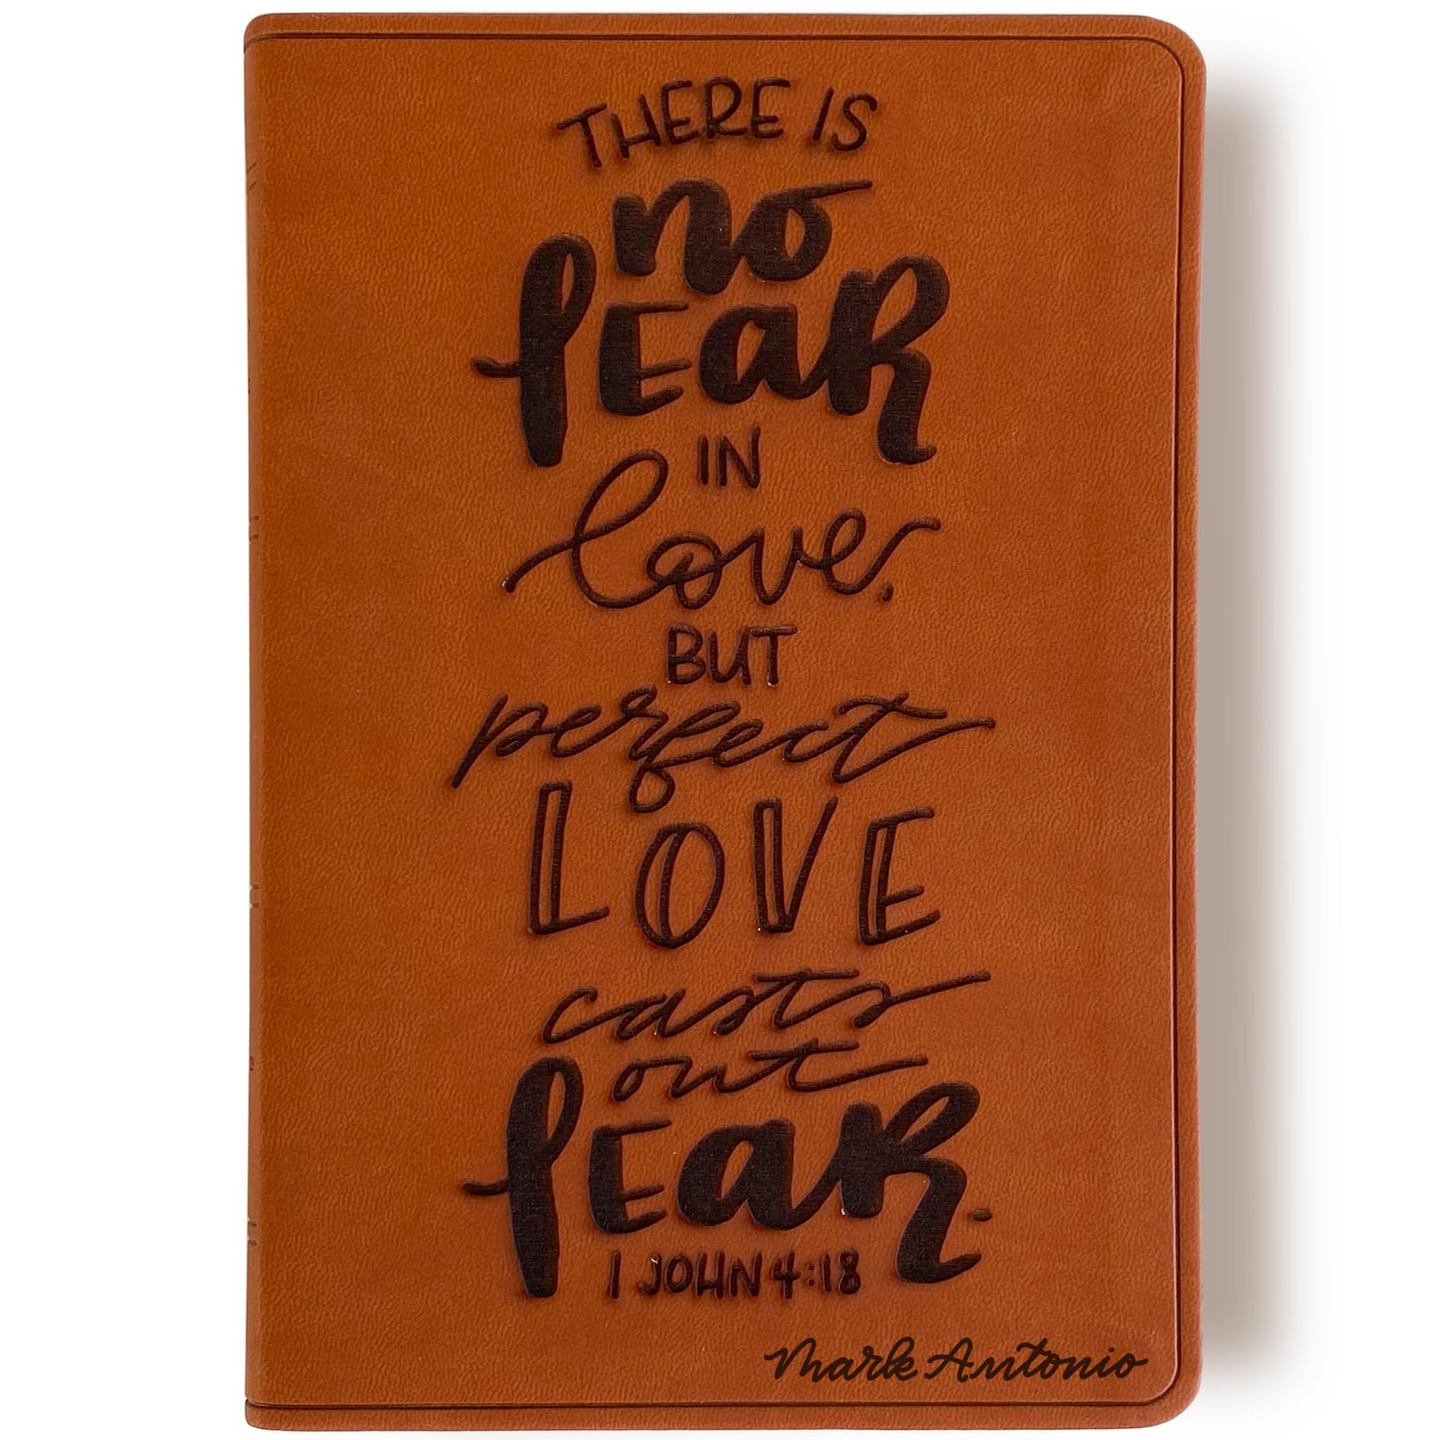 THERE IS
no
fEaR
IN
love,
BUT
perfect
LOVE
casts
out
fEaR.
1 JOHN 4:18
Mark Antonio